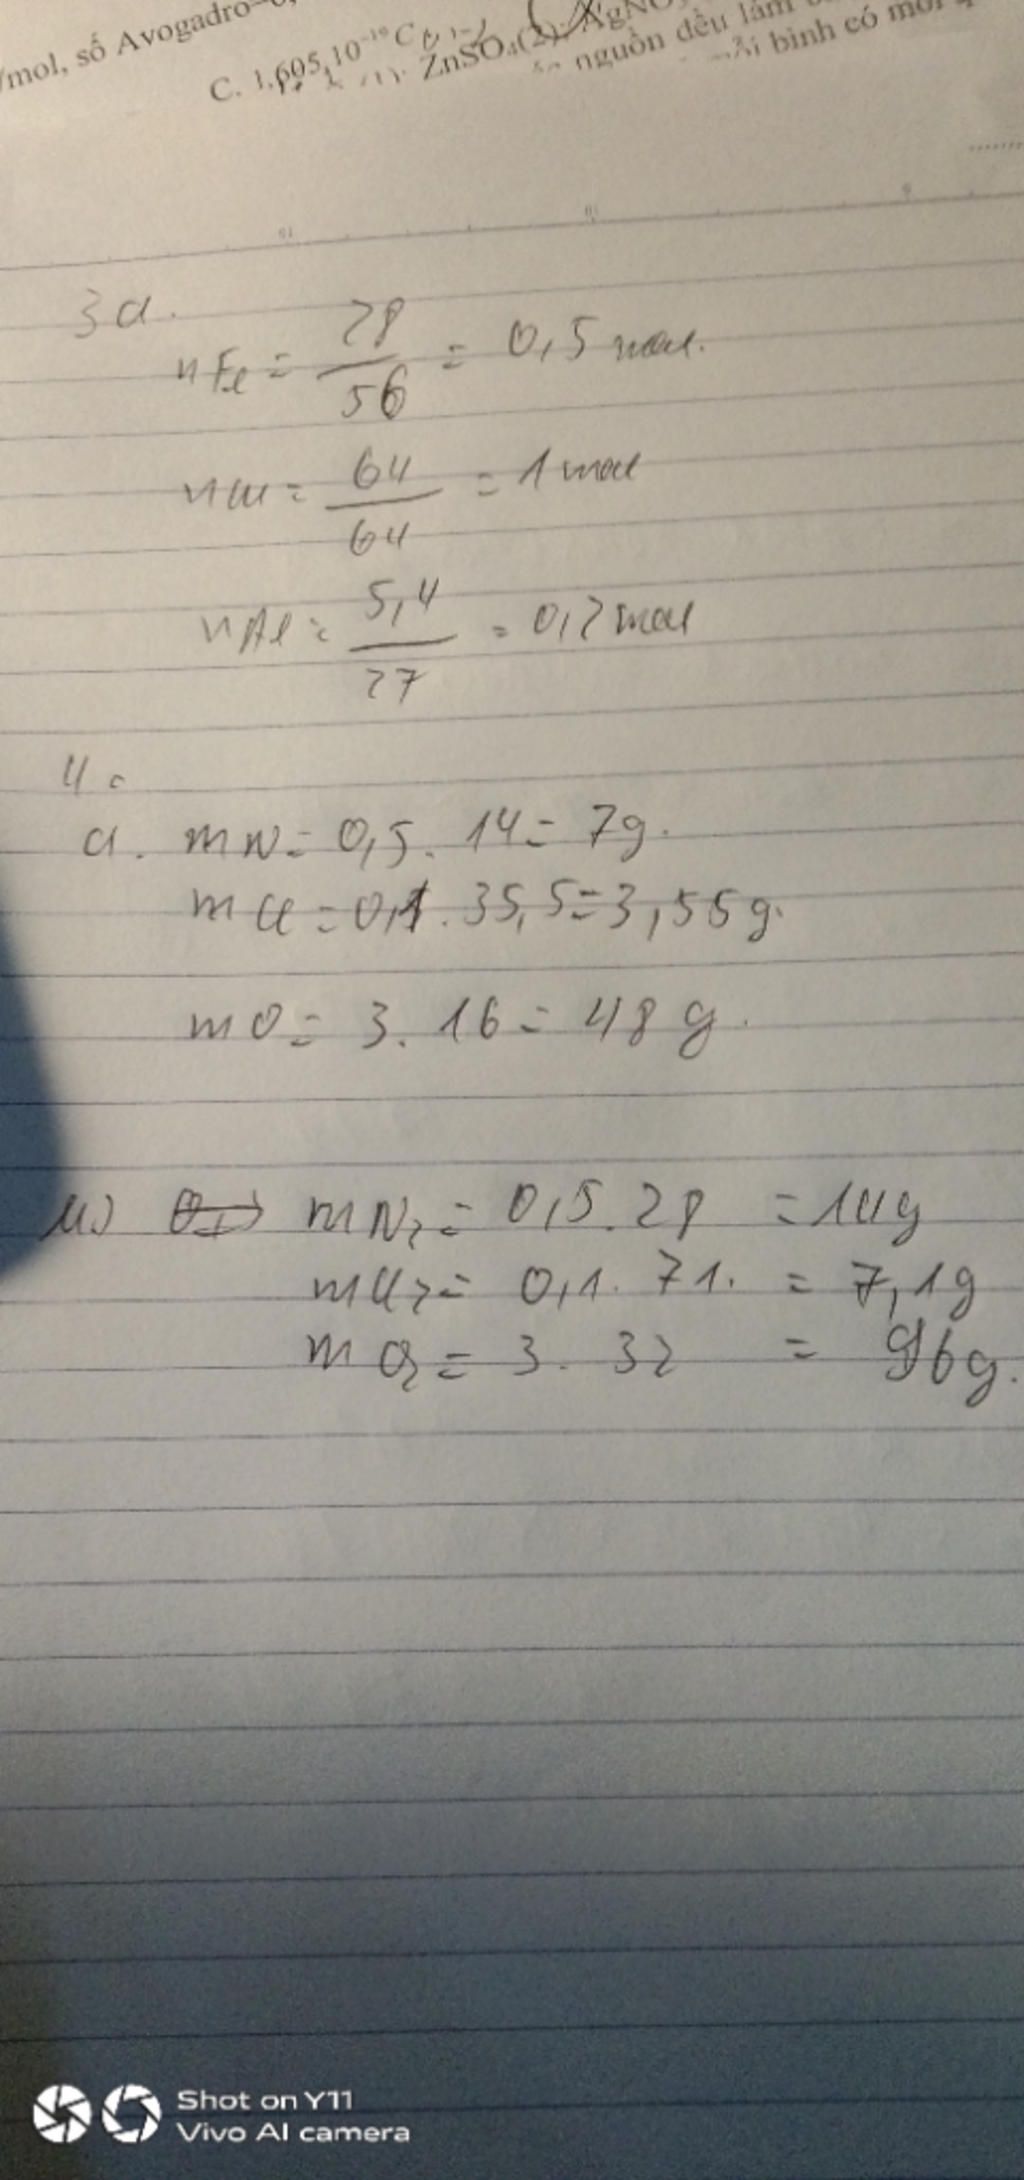 /mol, số Avogadro
C. 1,605.10⁻¹⁹ C
ZnSO₄(2); AgNO
nguồn đều làm
bình có
3a.
nFe = 28/56 = 0,5 mol.
nCu = 64/64 = 1 mol
nAl = 5,4/27 = 0,2 mol
4.
a. mN = 0,5. 14 = 7g.
mCl = 0,1. 35,5 = 3,55g.
mO = 3. 16 = 48 g.
mN₂ = 0,5. 28 = 14g
mCl₂ = 0,1. 71. = 7,1g
mO₂ = 3. 32 = 96g.
Shot on Y11
Vivo AI camera